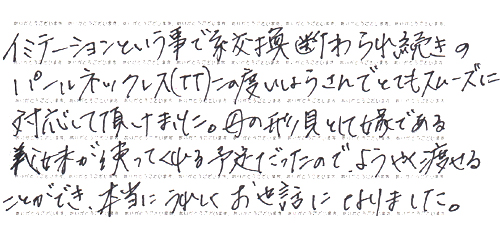 イミテーションという事で糸交換断わられ続きの
パールネックレス(TT)この度いしようさんでとてもスムーズに
対応して頂けました。母の形見として嫁である
義妹が使ってくれる予定だったので、ようやく渡せる
ことができ、本当にうれしくお世話になりました。